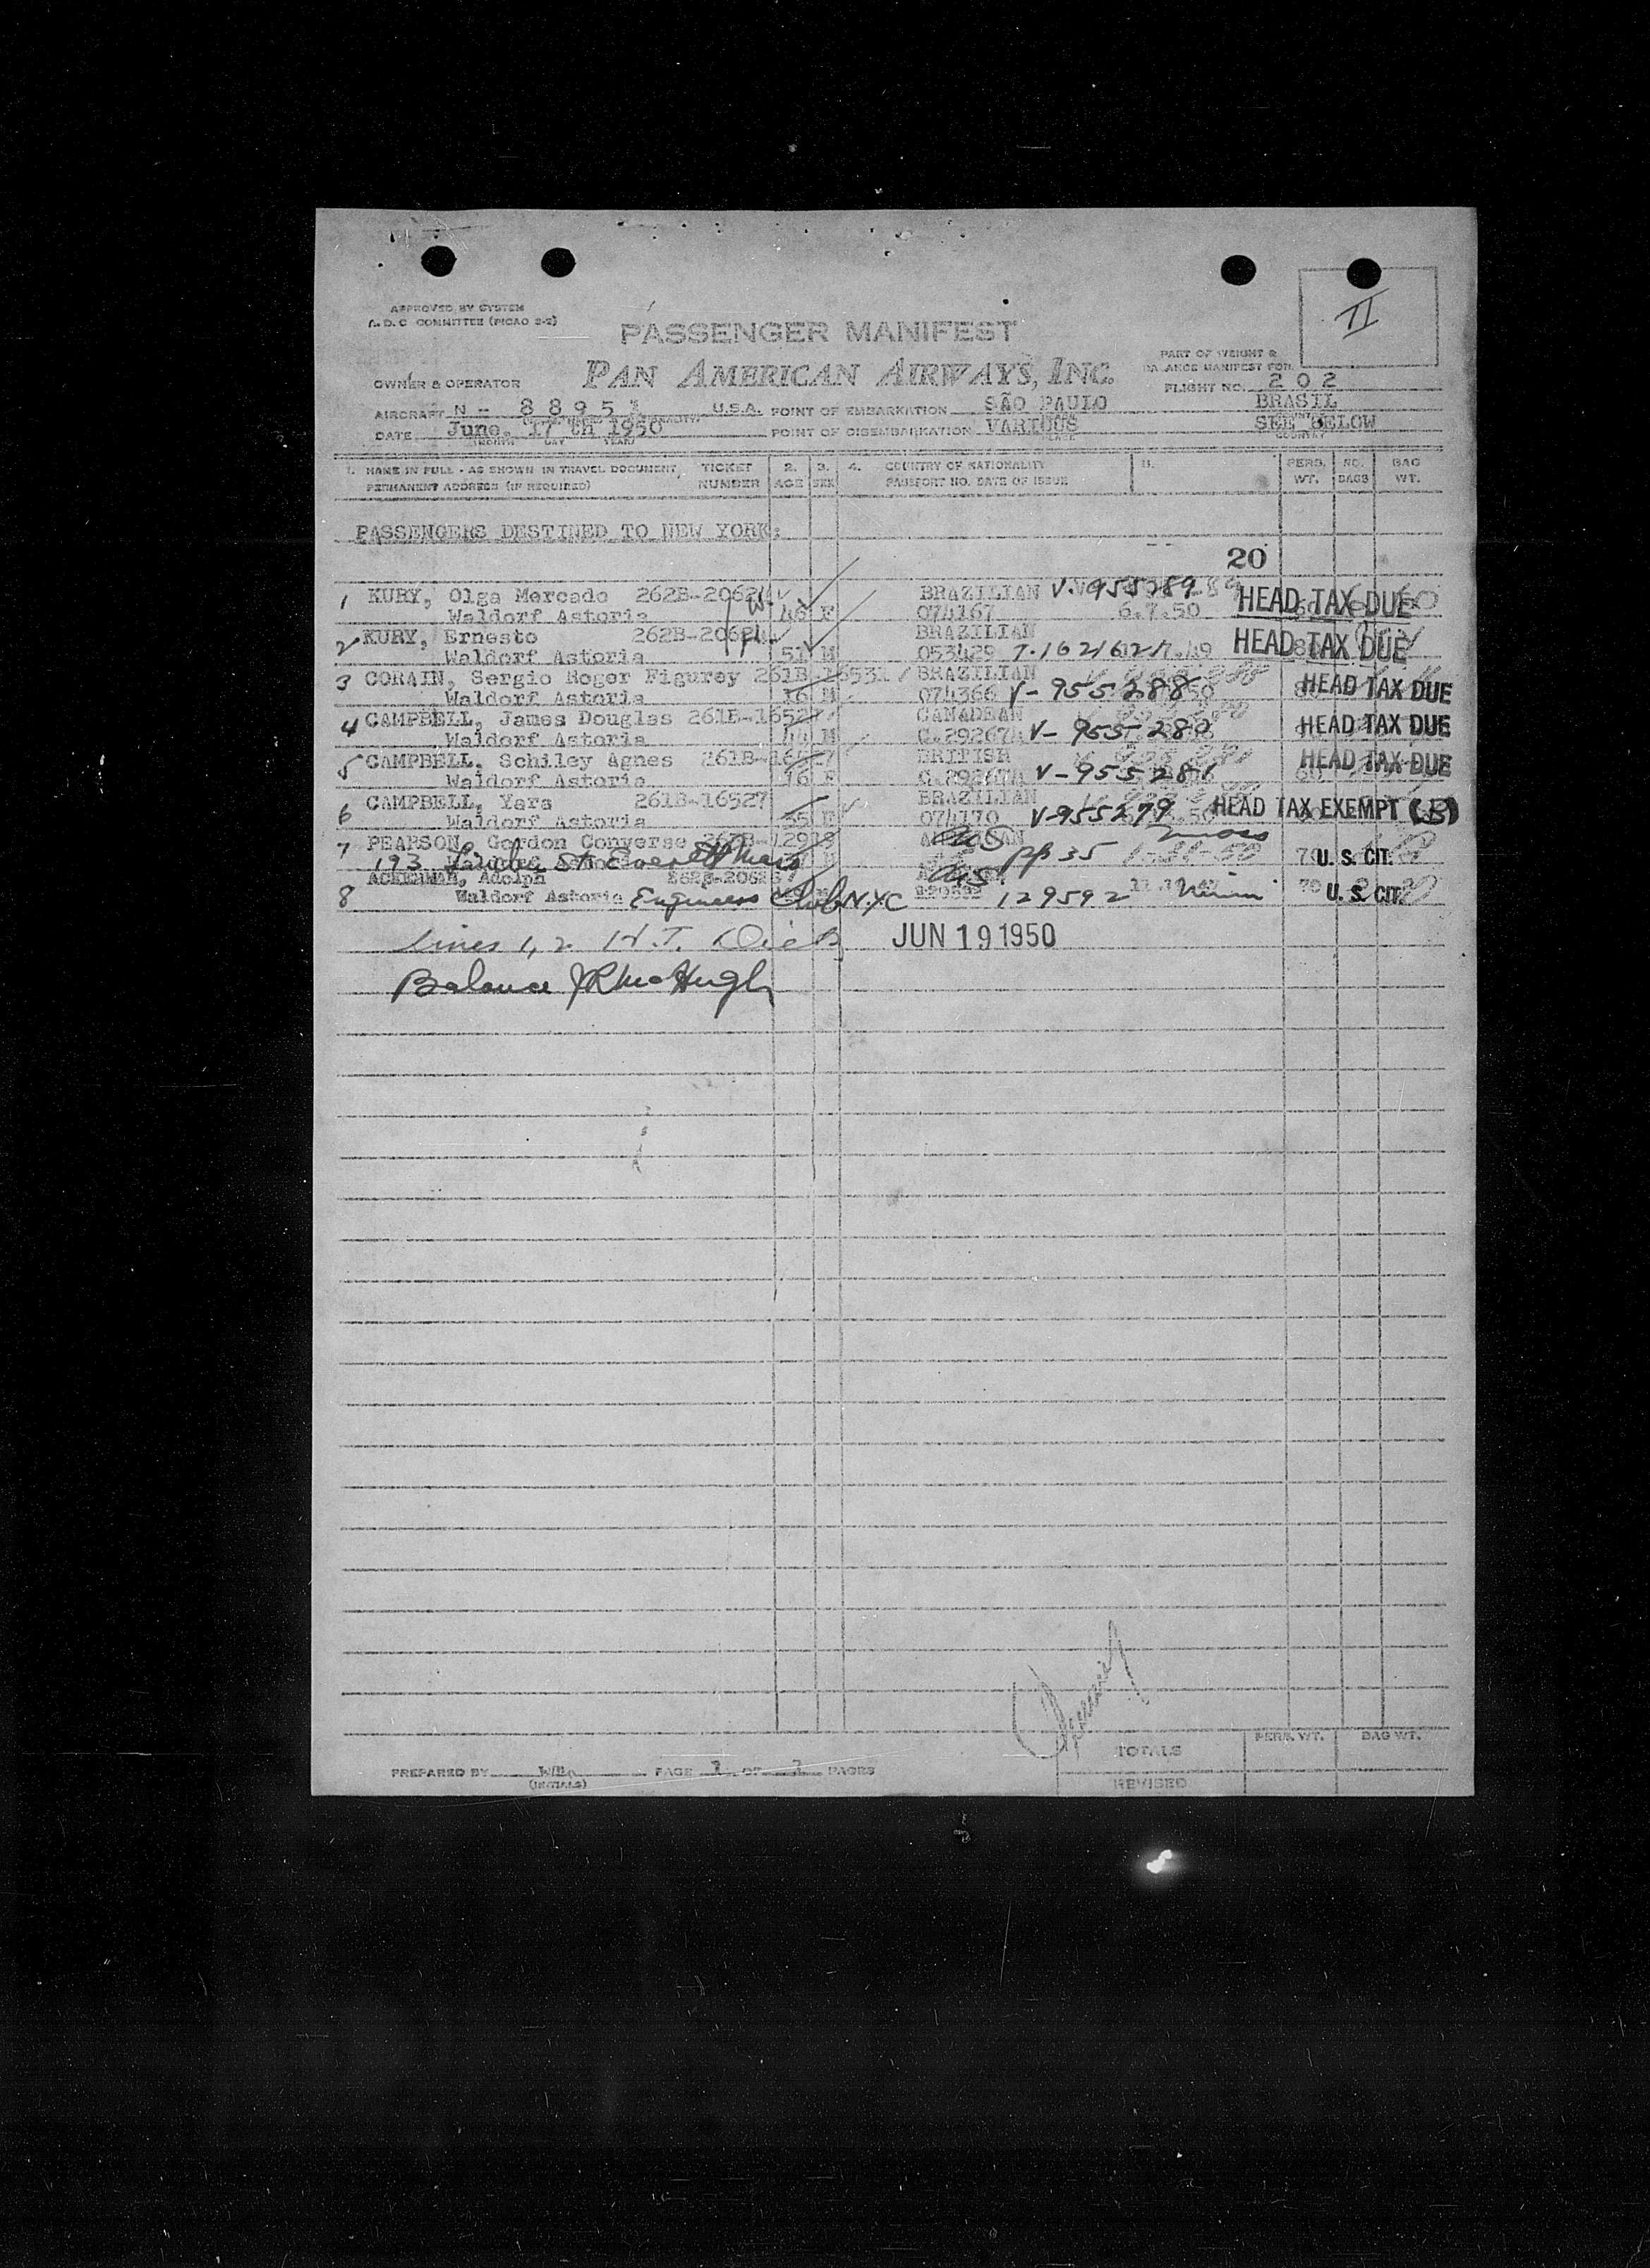 II
APPROVED BY SYSTEM
A. D. C COMMITTEE (PICAO 2-2)
PASSENGER MANIFEST
PART OF WEIGHT &
BALANCE MANIFEST FOR
OWNER & OPERATOR PAN AMERICAN AIRWAYS, INC.
FLIGHT NO. 202
AIRCRAFT N - 88951 U.S.A. POINT OF EMBARKATION SÃO PAULO BRASIL
DATE June, 17 th 1950 POINT OF DISEMBARKATION VARIOUS SEE BELOW
MONTH DAY YEAR PLACE COUNTRY
1. NAME IN FULL - AS SHOWN IN TRAVEL DOCUMENT TICKET 2. 3. 4. COUNTRY OF NATIONALITY PERS. NO. BAG
PERMANENT ADDRESS (IF REQUIRED) NUMBER AGE SEX PASSPORT NO. DATE OF ISSUE WT. BAGS WT.
PASSENGERS DESTINED TO NEW YORK:
20
1 KURY, Olga Mercado 262B-20624 BRAZILIAN V-955089
Waldorf Astoria 46 F 074167 6.7.50 HEAD TAX DUE
2 KURY, Ernesto 262B-20624 BRAZILIAN
Waldorf Astoria 51 M 053429 T.162162 HEAD TAX DUE
3 CORAIN, Sergio Roger Figurey 261B-16531 BRAZILIAN
Waldorf Astoria 16 M 074366 V-955288 HEAD TAX DUE
4 CAMPBELL, James Douglas 261B-16527 CANADEAN
Waldorf Astoria 44 M C.29267A V-955280 HEAD TAX DUE
5 CAMPBELL, Schiley Agnes 261B-16527 BRITISH
Waldorf Astoria 16 F C.29267A V-955281 HEAD TAX DUE
6 CAMPBELL, Yara 261B-16527 BRAZILIAN
Waldorf Astoria 35 F 074170 V-955279 HEAD TAX EXEMPT (B)
7 PEARSON, Gordon Converse US
193 Linden St Everett Mass pp 35 U. S. CIT.
ACKERMAN, Adolph US
8 Waldorf Astoria Engineers Club N.Y.C 129592 U. S. CIT.
Lines 1, 2 H.T. JUN 19 1950
Balance J R McHugh
TOTALS PERS. WT. BAG WT.
PREPARED BY (INITIALS) PAGE OF PAGES
REVISED